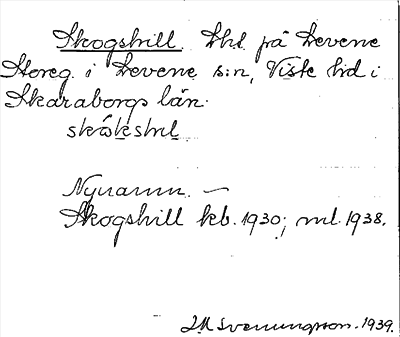 Skogshill. Lht. på Levene
Storeg. i Levene s:n, Viste hd i
Skaraborgs län.
Nynamn. —
Skogshill kb. 1930; ml. 1938.
1939.